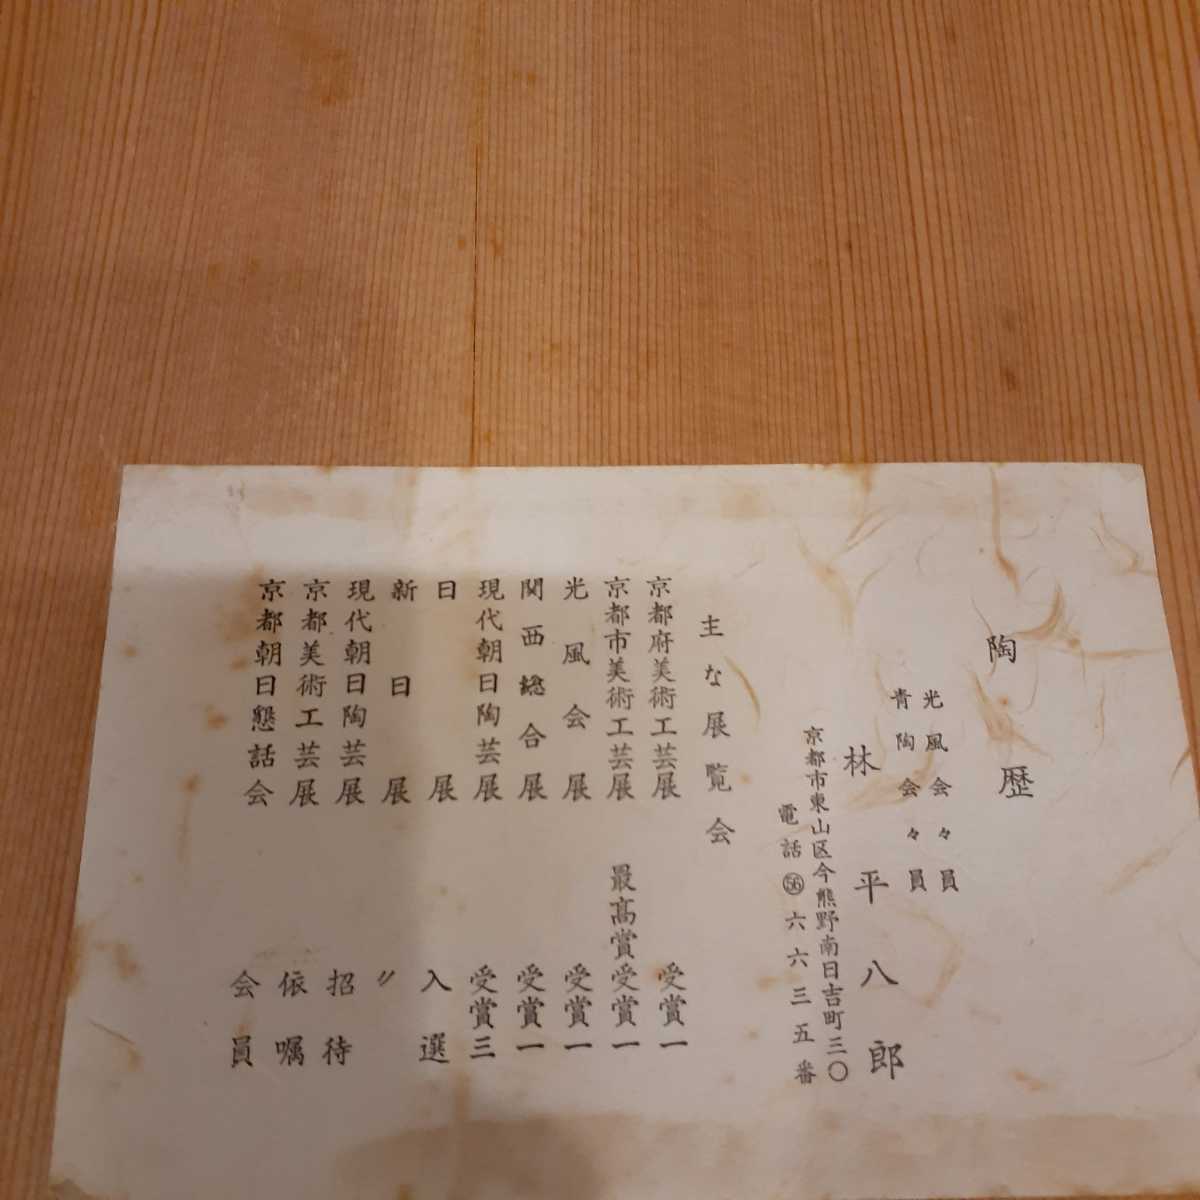 陶歴
光風会々員
青陶会々員
林平八郎
京都市東山区今熊野南日吉町三〇
電話㊶六六三五番
主な展覧会
京都府美術工芸展 受賞一
京都市美術工芸展 最高賞受賞一
光風会展 受賞一
関西総合展 受賞一
現代朝日陶芸展 受賞三
日展 入選
新日展 〃
現代朝日陶芸展 招待
京都美術工芸展 依嘱
京都朝日懇話会 会員